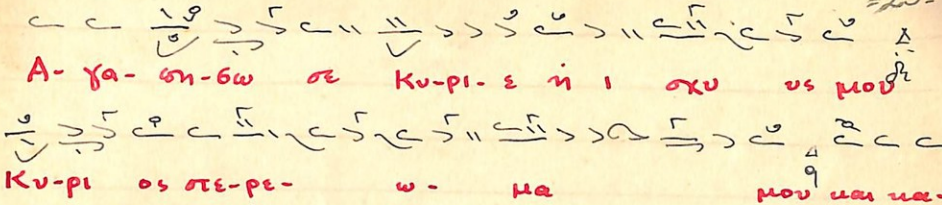 Α- γα- πη-σω σε Κυ-ρι-ε ή ι σχυ υς μου
Κυ-ρι ος στε-ρε- ω- μα μου και κα-